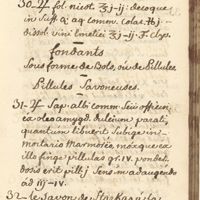 30_ ♃ fol. nicot. ʒj-ij. decoque
in suff. q. aq. comm. colat. ℔j
dissol. vini emetici ℥j-ij. F. clys.
fondants
Sous forme de Bols, ou de Pillules
Pillules Savoneuses.
31_ ♃ Sap. alb. comm. seu officin.
ex oleo amygd. dulcium parati,
quantum libuerit Subige in
mortario Marmoreo, moxque ex
illo finge pillulas gr. IV. pondet.
dosis erit pill. j Sens. m. adaugendo
ad iij-IV.
32_ le Savon de Starkey à la